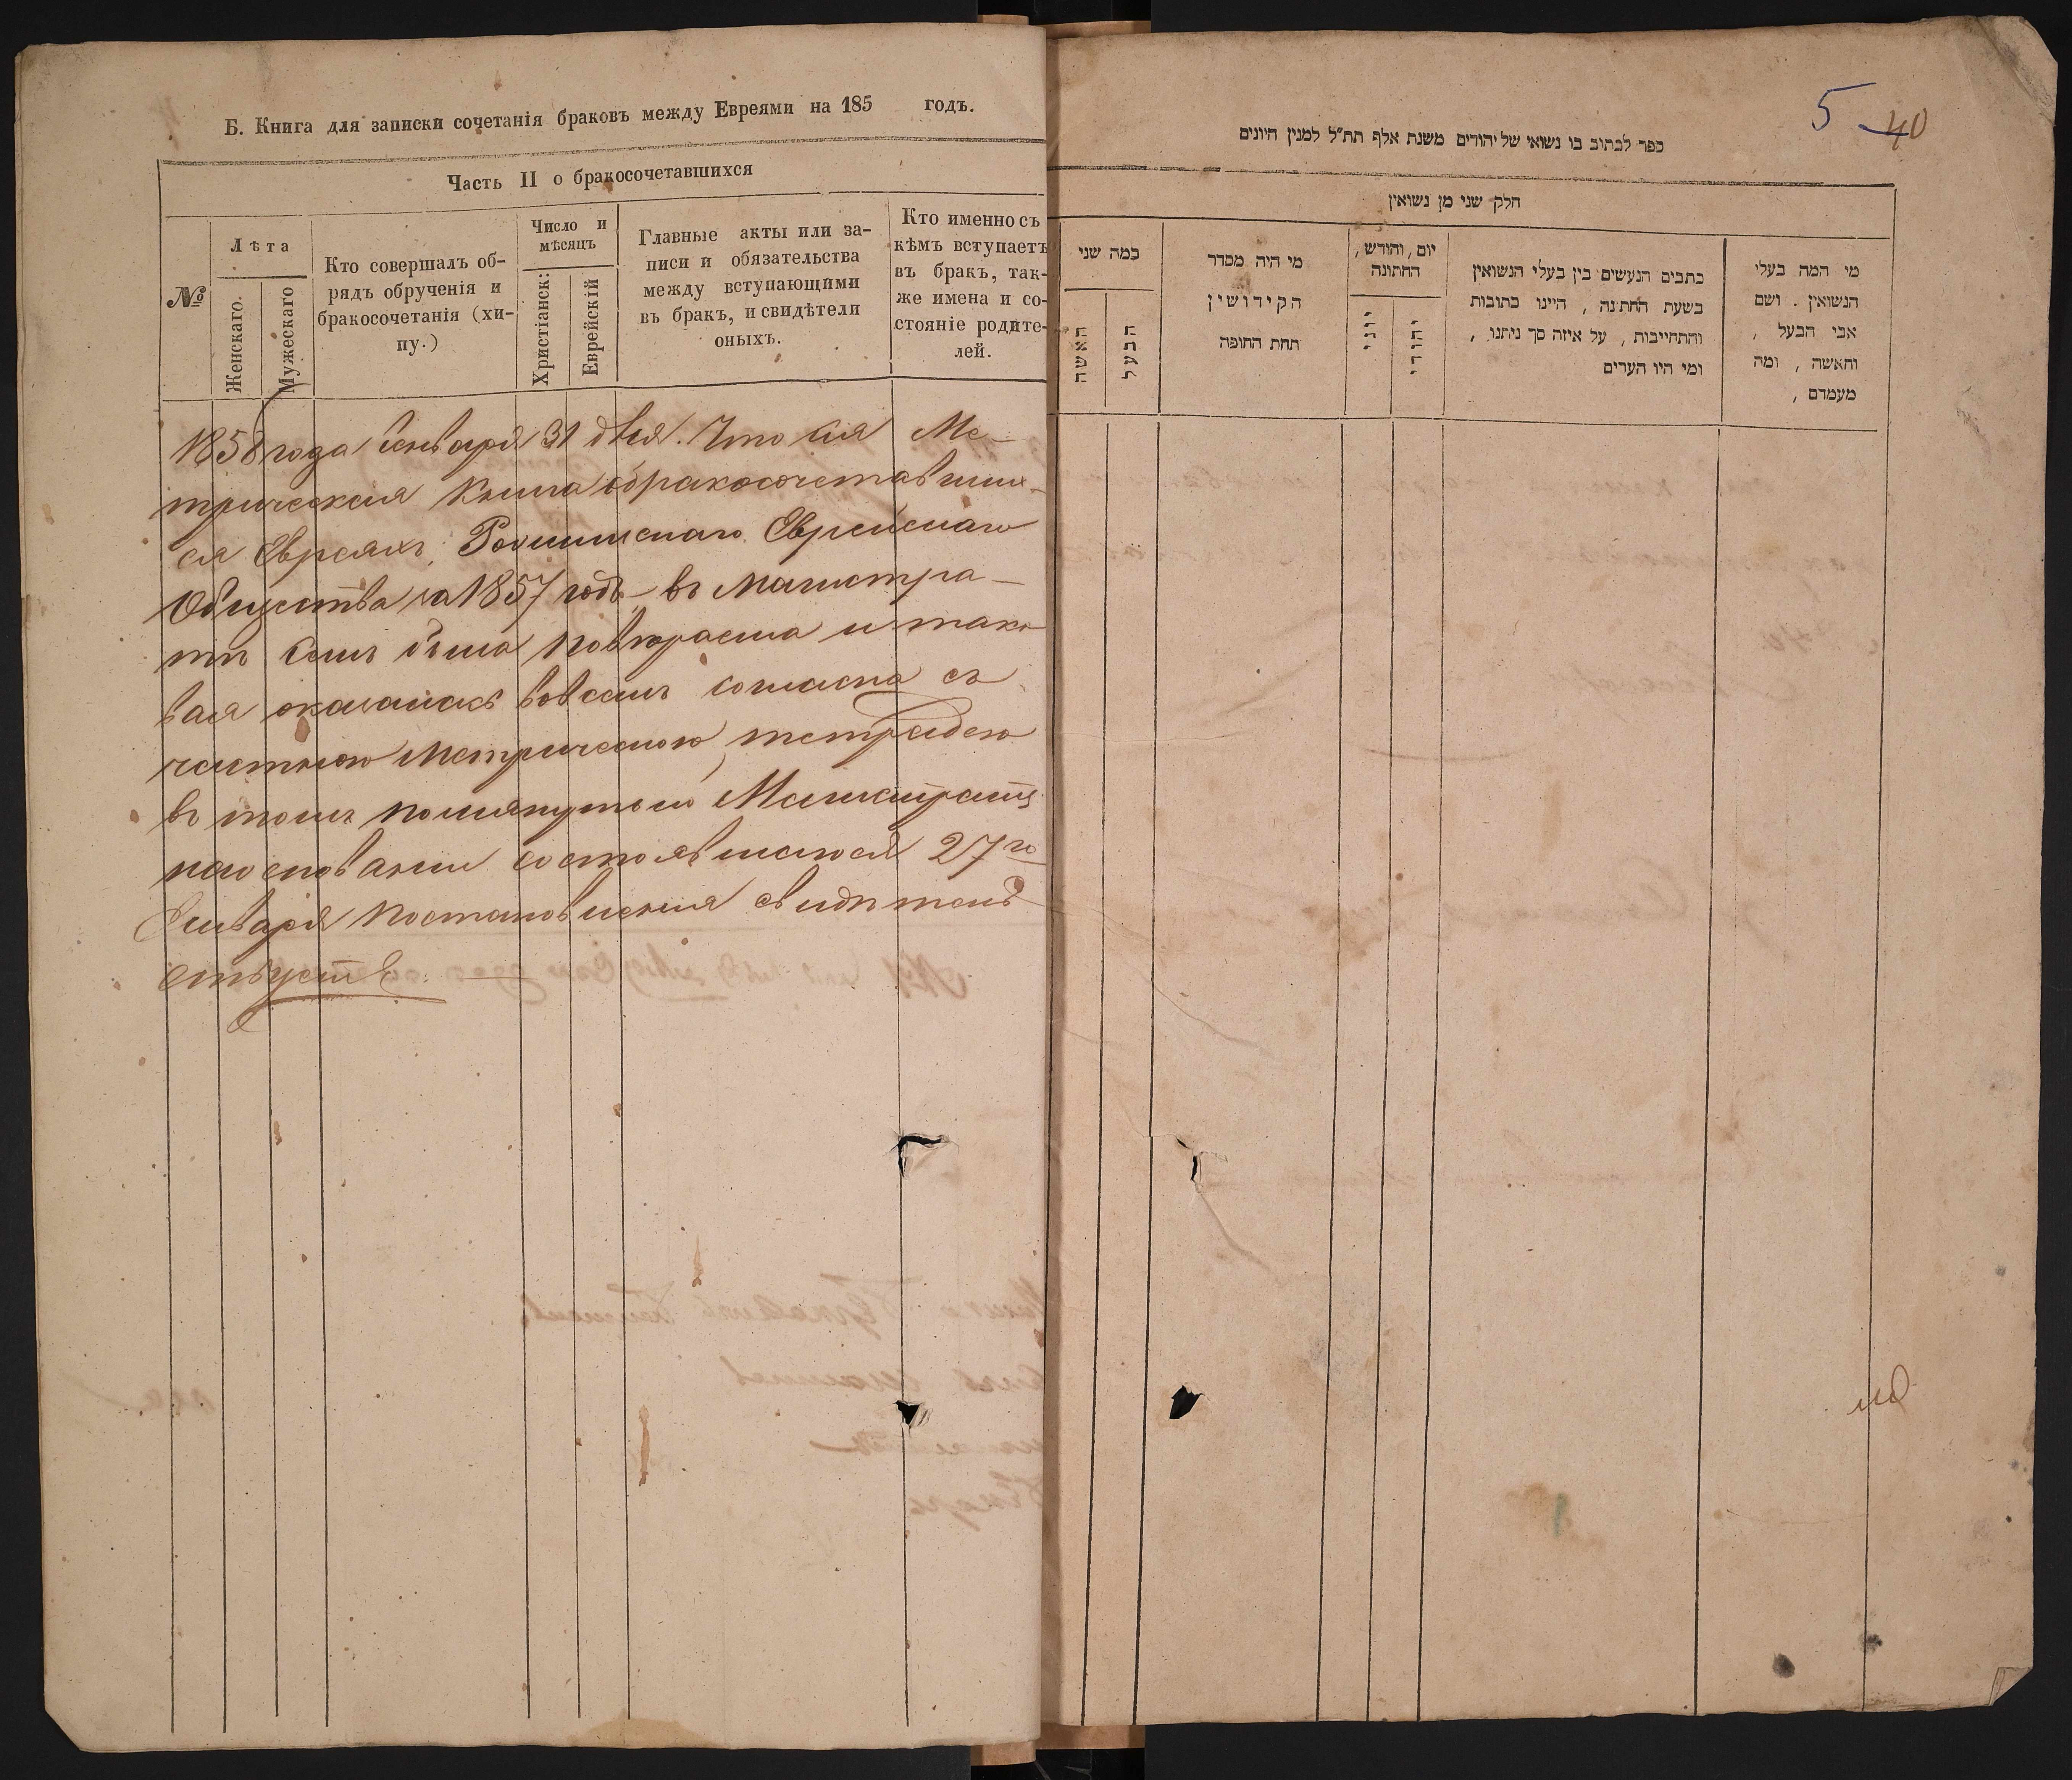 Б. Книга для записки сочетанія браковъ между Евреями на 185 годъ.
Часть II о бракосочетавшихся
№
Лѣта
Женскаго.
Мужескаго
Кто совершалъ об-
рядъ обрученія и
бракосочетанія (хи-
пу.)
Число и
мѣсяцъ
Христіанск:
Еврейскій
Главные акты или за-
писи и обязательства
между вступающими
въ бракъ, и свидѣтели
оныхъ.
Кто именно съ
кѣмъ вступаетъ
въ бракъ, так-
же имена и со-
стояніе родите-
лей.
1858 года Января 31 дня. Что сія Ме-
трическая книга о бракосочетавших-
ся Евреяхъ Еврейскаго
Общества за 1857 годъ въ Магистра-
тѣ семъ была повѣряема и тако
вая оказалась во всемъ согласна съ
частною Метрическою тетрадею
въ томъ помянутый Магистратъ
на основаніи состоявшагося 27го
Января постановленія свидѣтель
ствуетъ
5 40
ספר לכתוב בו נשואי של יהודים משנת אלף תת"ל למנין היונים
חלק שני מן נשואין
כמה שני
האשה
הבעל
מי היה מסדר
הקידושין
תחת החופה
יום, וחודש,
החתונה
יוני
יהודי
כתבים הנעשים בין בעלי הנשואין
בשעת החתונה, היינו כתובות
והתחייבות, על איזה סך ניתנו,
ומי היו הערים
מי המה בעלי
הנשואין. ושם
אבי הבעל,
והאשה, ומה
מעמדם,